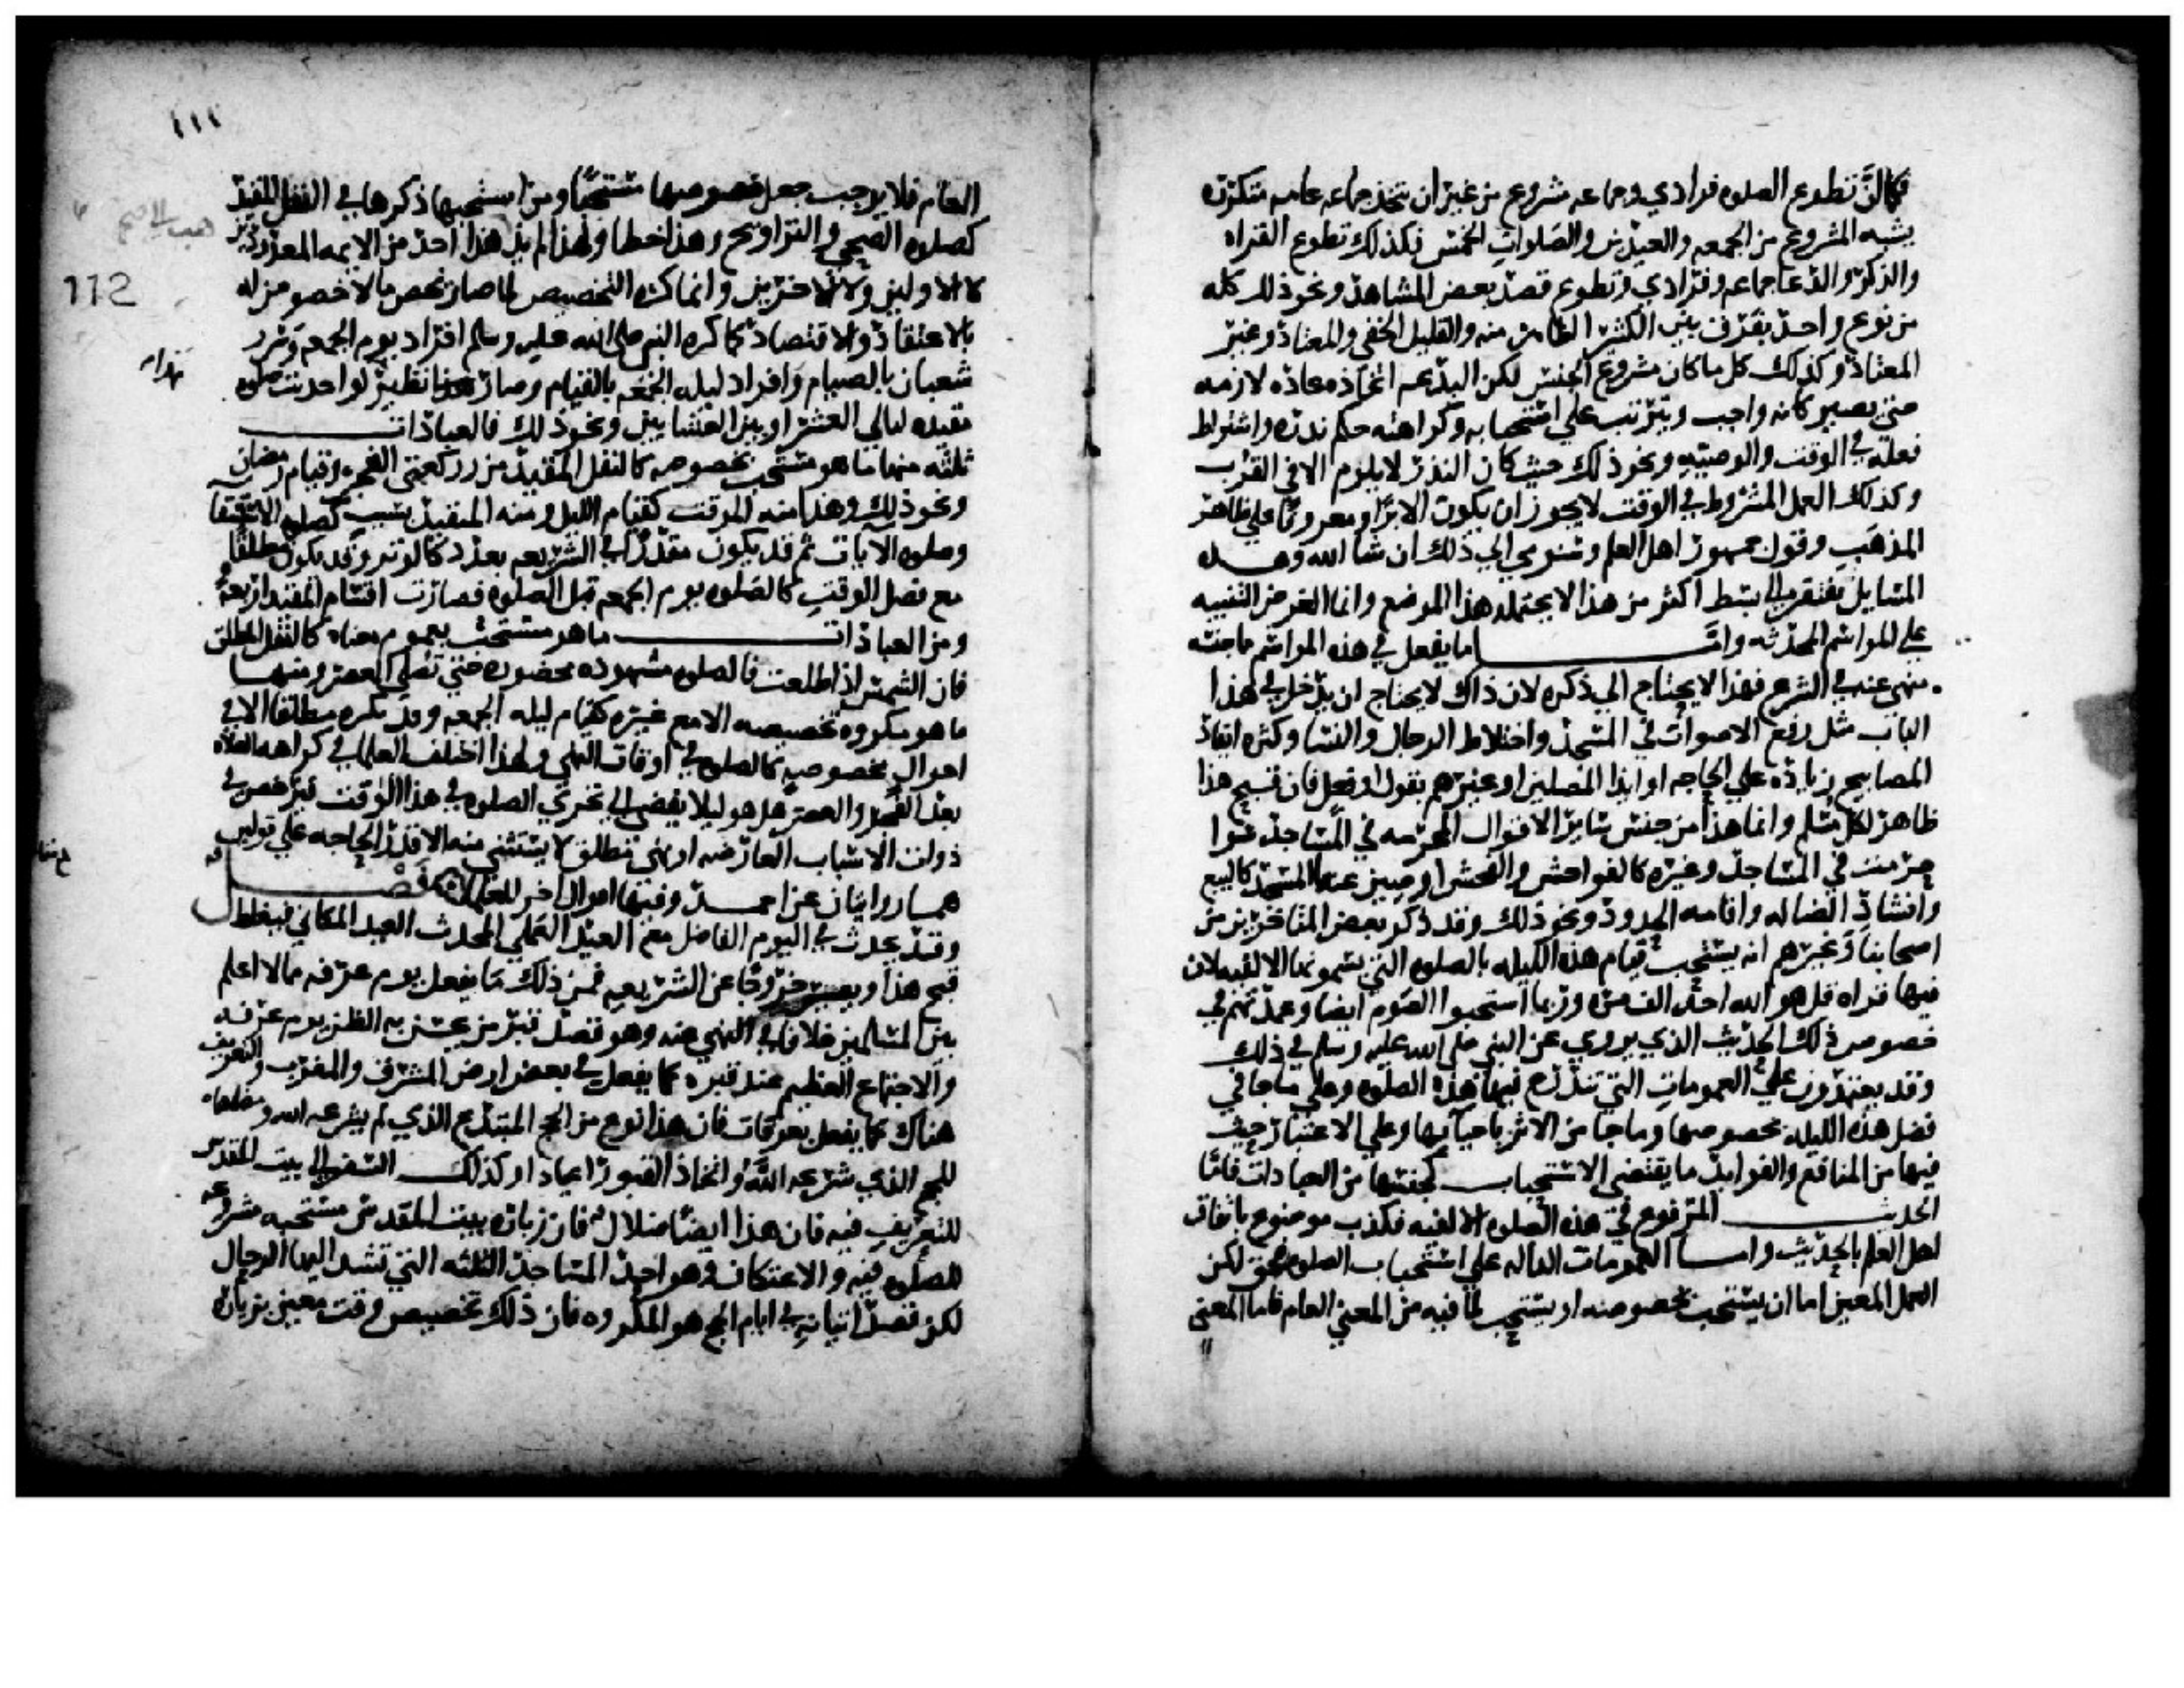 فكما ان تطوع الصلوه فرادي وجماعه مشروع من غير ان يتخذ جماعه عامه متكرره
يشبه المشروع من الجمعه والعيدين والصلوات الخمس فكذلك تطوع القراه
والذكر والدعا جماعه وفرادي وتطوع قصد بعض المشاهد ونحو ذلك كله
من نوع واحد يفرق بين الكثير الظاهر منه والقليل الخفي والمعتاد وغير
المعتاد وكذلك كل ما كان مشروع الجنس لكن البدعه اتخاذه عاده لازمه
حتى يصير كانه واجب ويترتب علي استحبابه وكراهته حكم نذره واشتراط
فعله في الوقف والوصيه ونحو ذلك حيث كان النذر لا يلزم الا في القرب
وكذلك العمل المشروط في الوقف لا يجوز ان يكون الا برا او معروفا علي ظاهر
المذهب وقول جمهور اهل العلم وسنومي الي ذلك ان شا الله وهذه
المسايل تفتقر الي بسط اكثر من هذا لا يحتمله هذا الموضع وانما الغرض التنبيه
علي المواسم المحدثه واما ما يفعل في هذه المواسم مما جنسه
منهي عنه في الشرع فهذا لا يحتاج الي ذكره لان ذاك لا يحتاج ان يدخل في هذا
الباب مثل رفع الاصوات في المسجد واختلاط الرجال والنسا وكثره ايقاد
المصابيح زياده علي الحاجه او ايذا المصلين او غيرهم بقول او فعل فان قبح هذا
ظاهر لكل مسلم وانما هذا من جنس ساير الاقوال المحرمه في المساجد سوا
حرمت في المساجد وغيره كالفواحش والفحش او صين عنه المسجد كالبيع
وانشاد الضاله واقامه الحدود ونحو ذلك وقد ذكر بعض المتاخرين من
اصحابنا وغيرهم انه يستحب قيام هذه الليله بالصلوه التي يسمونها الالفيه لان
فيها قراه قل هو الله احد الف مره وربما استحبوا الصوم ايضا وعمدتهم في
خصوص ذلك الحديث الذي يروي عن النبي صلي الله عليه وسلم في ذلك
وقد يعتمدون علي العمومات التي تندرج فيها هذه الصلوه وعلي ما جا في
فضل هذه الليله بخصوصها وما جا من الاثر باحيايها وعلي الاعتبار حيث
فيها من المنافع والفوايد ما يقتضي الاستحباب كجنسها من العبادات فاما
الحديث المرفوع في هذه الصلوه الالفيه فكذب موضوع باتفاق
اهل العلم بالحديث واما العمومات الداله علي استحباب الصلوه فحق لكن
العمل المعين اما ان يستحب بخصوصه او يستحب لما فيه من المعني العام فاما المعني
١١١
العام فلا يوجب جعل خصوصها مستحبا ومن استحبها ذكرها في النفل المقيد
كصلوه الضحي والتراويح وهذا خطا ولهذا لم يذكر هذا احد من الايمه المعدودين
لا الاولين ولا الاخرين وانما كره التخصيص لما صار يخص ما لا خصوص له
بالاعتقاد والاقتصاد كما كره النبي صلي الله عليه وسلم افراد يوم الجمعه وسرر
شعبان بالصيام وافراد ليله الجمعه بالقيام وصار نظير لو احدثت صلوه
مقيده ليالي العشر او بين العشايين ونحو ذلك فالعبادات
ثلثه منها ما هو مستحب بخصوصه كالنفل المقيد من ركعتي الفجر وقيام رمضان
ونحو ذلك وهذا منه الموقت كقيام الليل ومنه المقيد بسبب كصلوه الاستسقا
وصلوه الايات ثم قد يكون مقدرا في الشريعه بعدد كالوتر وقد يكون مطلقا
مع فضل الوقت كالصلوه يوم الجمعه قبل الصلوه فصارت اقسام المقيد اربعه
ومن العبادات ما هو مستحب بعموم معناه كالنفل المطلق
فان الشمس اذا طلعت فالصلوه مشهوده محضوره حتي تصلي العصر ومنها
ما هو مكروه تخصيصه الا مع غيره كقيام ليله الجمعه وقد يكره مطلقا الا في
احوال مخصوصه كالصلوه في اوقات النهي ولهذا اختلف العلما في كراهه الصلاه
بعد الفجر والعصر هل هو ليلا يفضي الي تحري الصلوه في هذا الوقت فيرخص في
ذوات الاسباب العارضه او هو نهي مطلق لا يستثني منه الا قدر الحاجه علي قولين
هما روايتان عن احمد وفيها اقوال اخر للعلما فصل
وقد يحدث في اليوم الفاضل مع العيد العملي المحدث العيد المكاني فيغلظ
قبح هذا ويصير خروجا عن الشريعه فمن ذلك ما يفعل يوم عرفه مما لا اعلم
بين المسلمين خلافا في النهي عنه وهو قصد قبر من يحسن به الظن يوم عرفه
والاجتماع العظيم عند قبره كما يفعل في بعض ارض المشرق والمغرب والتعريف
هناك كما يفعل بعرفات فان هذا نوع من الحج المبتدع الذي لم يشرعه الله ومضاهاه
للحج الذي شرعه الله واتخاذ القبور اعيادا وكذلك السفر الي بيت المقدس
للتعريف فيه فان هذا ايضا ضلال فان زياره بيت المقدس مستحبه مشروعه
للصلوه فيه والاعتكاف وهو احد المساجد الثلثه التي تشد اليها الرحال
لكن قصد اتيانه في ايام الحج هو المكروه فان ذلك تخصيص وقت معين بزياره
112